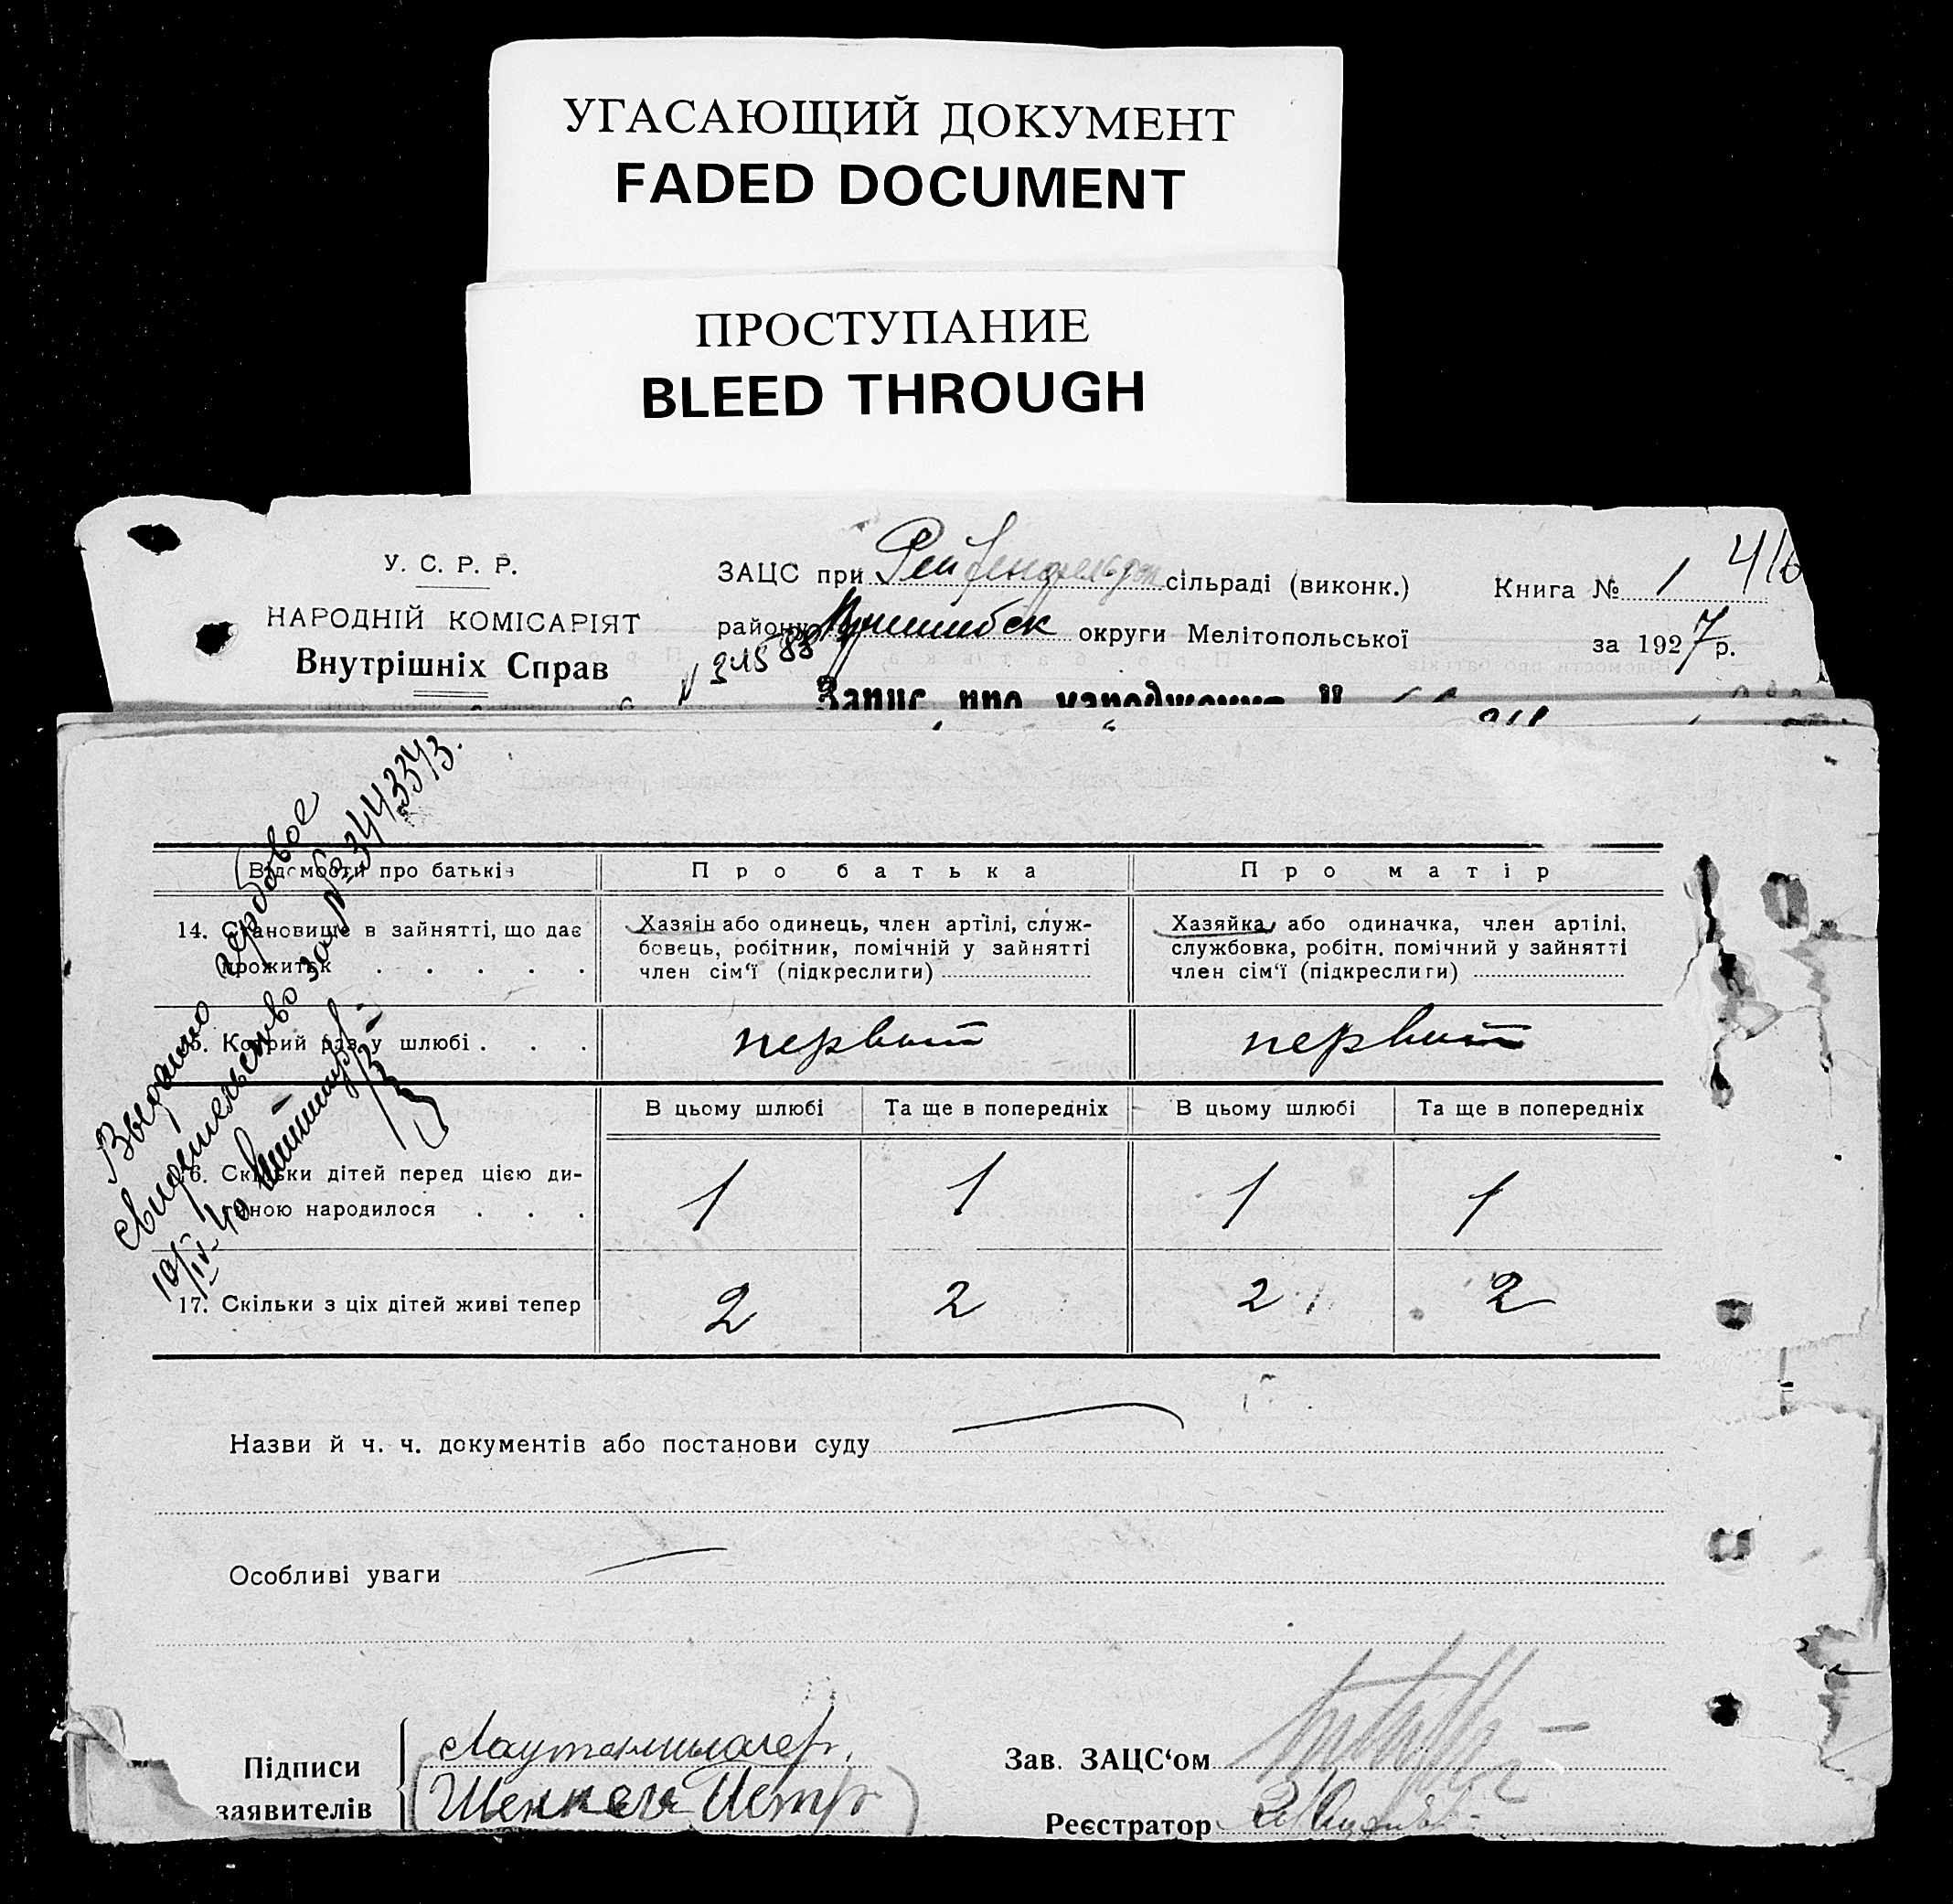 УГАСАЮЩИЙ ДОКУМЕНТ
FADED DOCUMENT
ПРОСТУПАНИЕ
BLEED THROUGH
У. С. Р. Р.
НАРОДНІЙ КОМІСАРІЯТ
Внутрішніх Справ
ЗАЦС при сільраді (виконк.)
Книга № 1 416
району Пришибск округи Мелітопольської
за 1927 р.
Запис про народження
Відомости про батьків
Про батька
Про матір
14. Становище в зайнятті, що дає
прожиток
Хазяін або одинець, член артілі, служ-
бовець, робітник, помічній у зайнятті
член сім'ї (підкреслити)
Хазяйка або одиначка, член артілі,
службовка, робітн. помічний у зайнятті
член сім'ї (підкреслити)
15. Котрий раз у шлюбі
первий
первий
В цьому шлюбі
Та ще в попередніх
В цьому шлюбі
Та ще в попередніх
16. Скільки дітей перед цією ди-
тиною народилося
1
1
1
1
17. Скільки з ціх дітей живі тепер
2
2
2
2
Выдано гербовое
свидетельство за № 3443343.
10/IV-40
Назви й ч. ч. документів або постанови суду
Особливі уваги
Підписи
заявителів
Лаутеншлагер.
Шенкель Петр
Зав. ЗАЦС'ом
Реєстратор